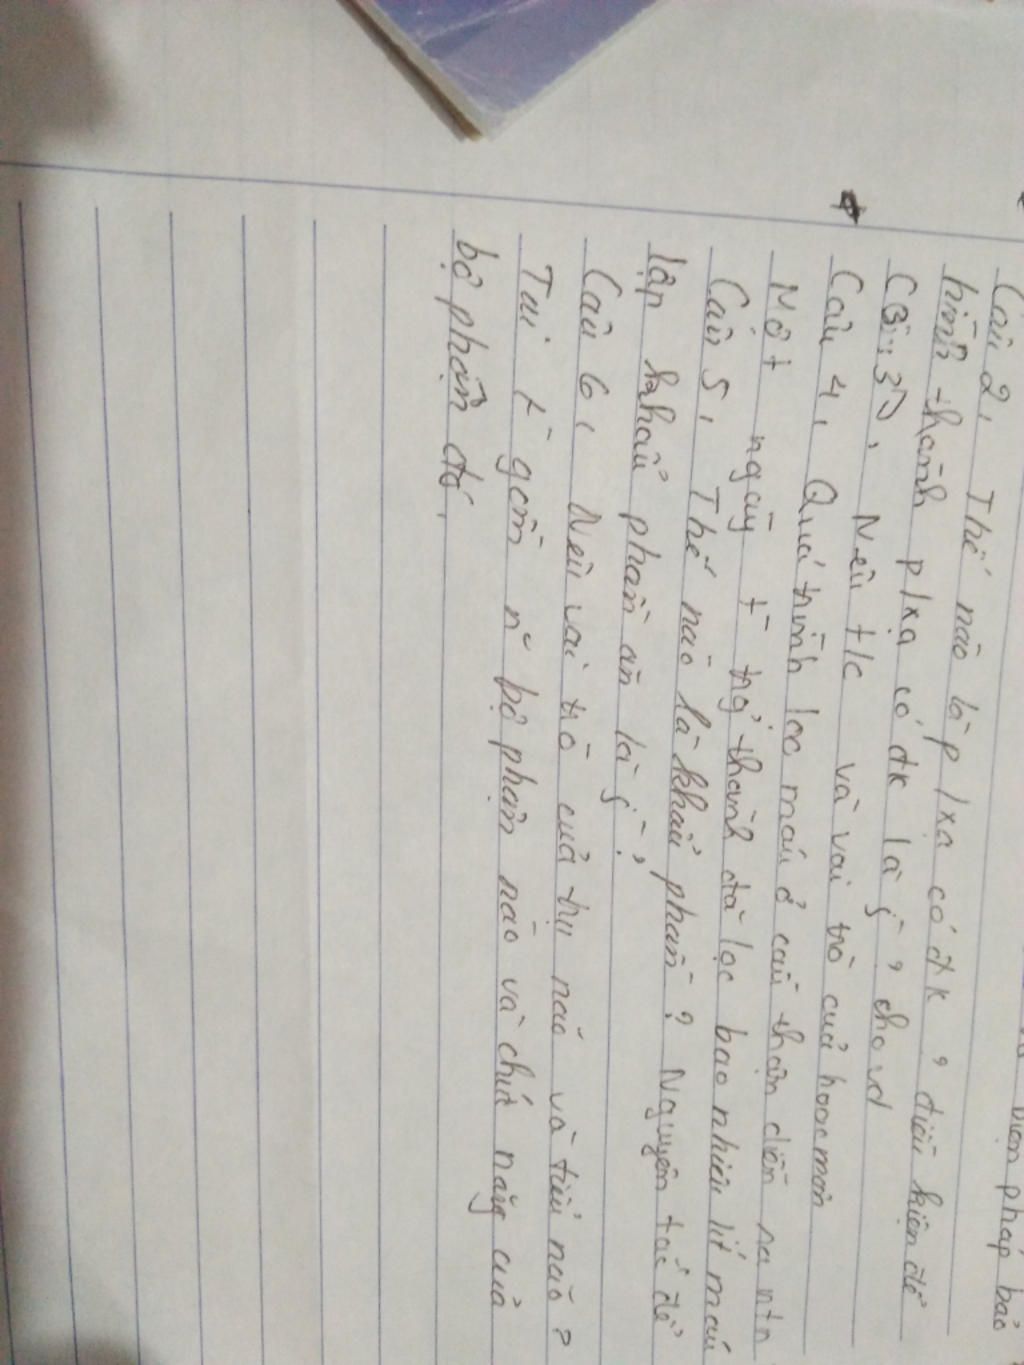 biện pháp bảo
Câu 2, Thế nào là p/xạ có đk, điều kiện để
hình thành p/xạ có đk là j, cho vd
Câu 3, Nêu t/c và vai trò của hoocmon
Câu 4, Quá trình lọc máu ở cầu thận diễn ra ntn
Một ngày t ng' trg' thành đã lọc bao nhiêu lít máu
Câu 5, Thế nào là khẩu phần? Nguyên tắc để
lập khẩu phần ăn là j?
Câu 6, Nêu vai trò của trụ não và tiểu não?
Tai t gồm n~ bộ phận nào và chức năng của
bộ phận đó,